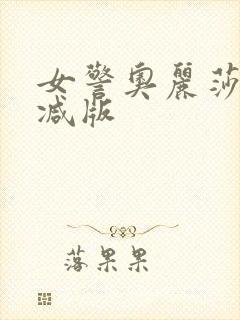 女警奥麗莎
减版
落果果